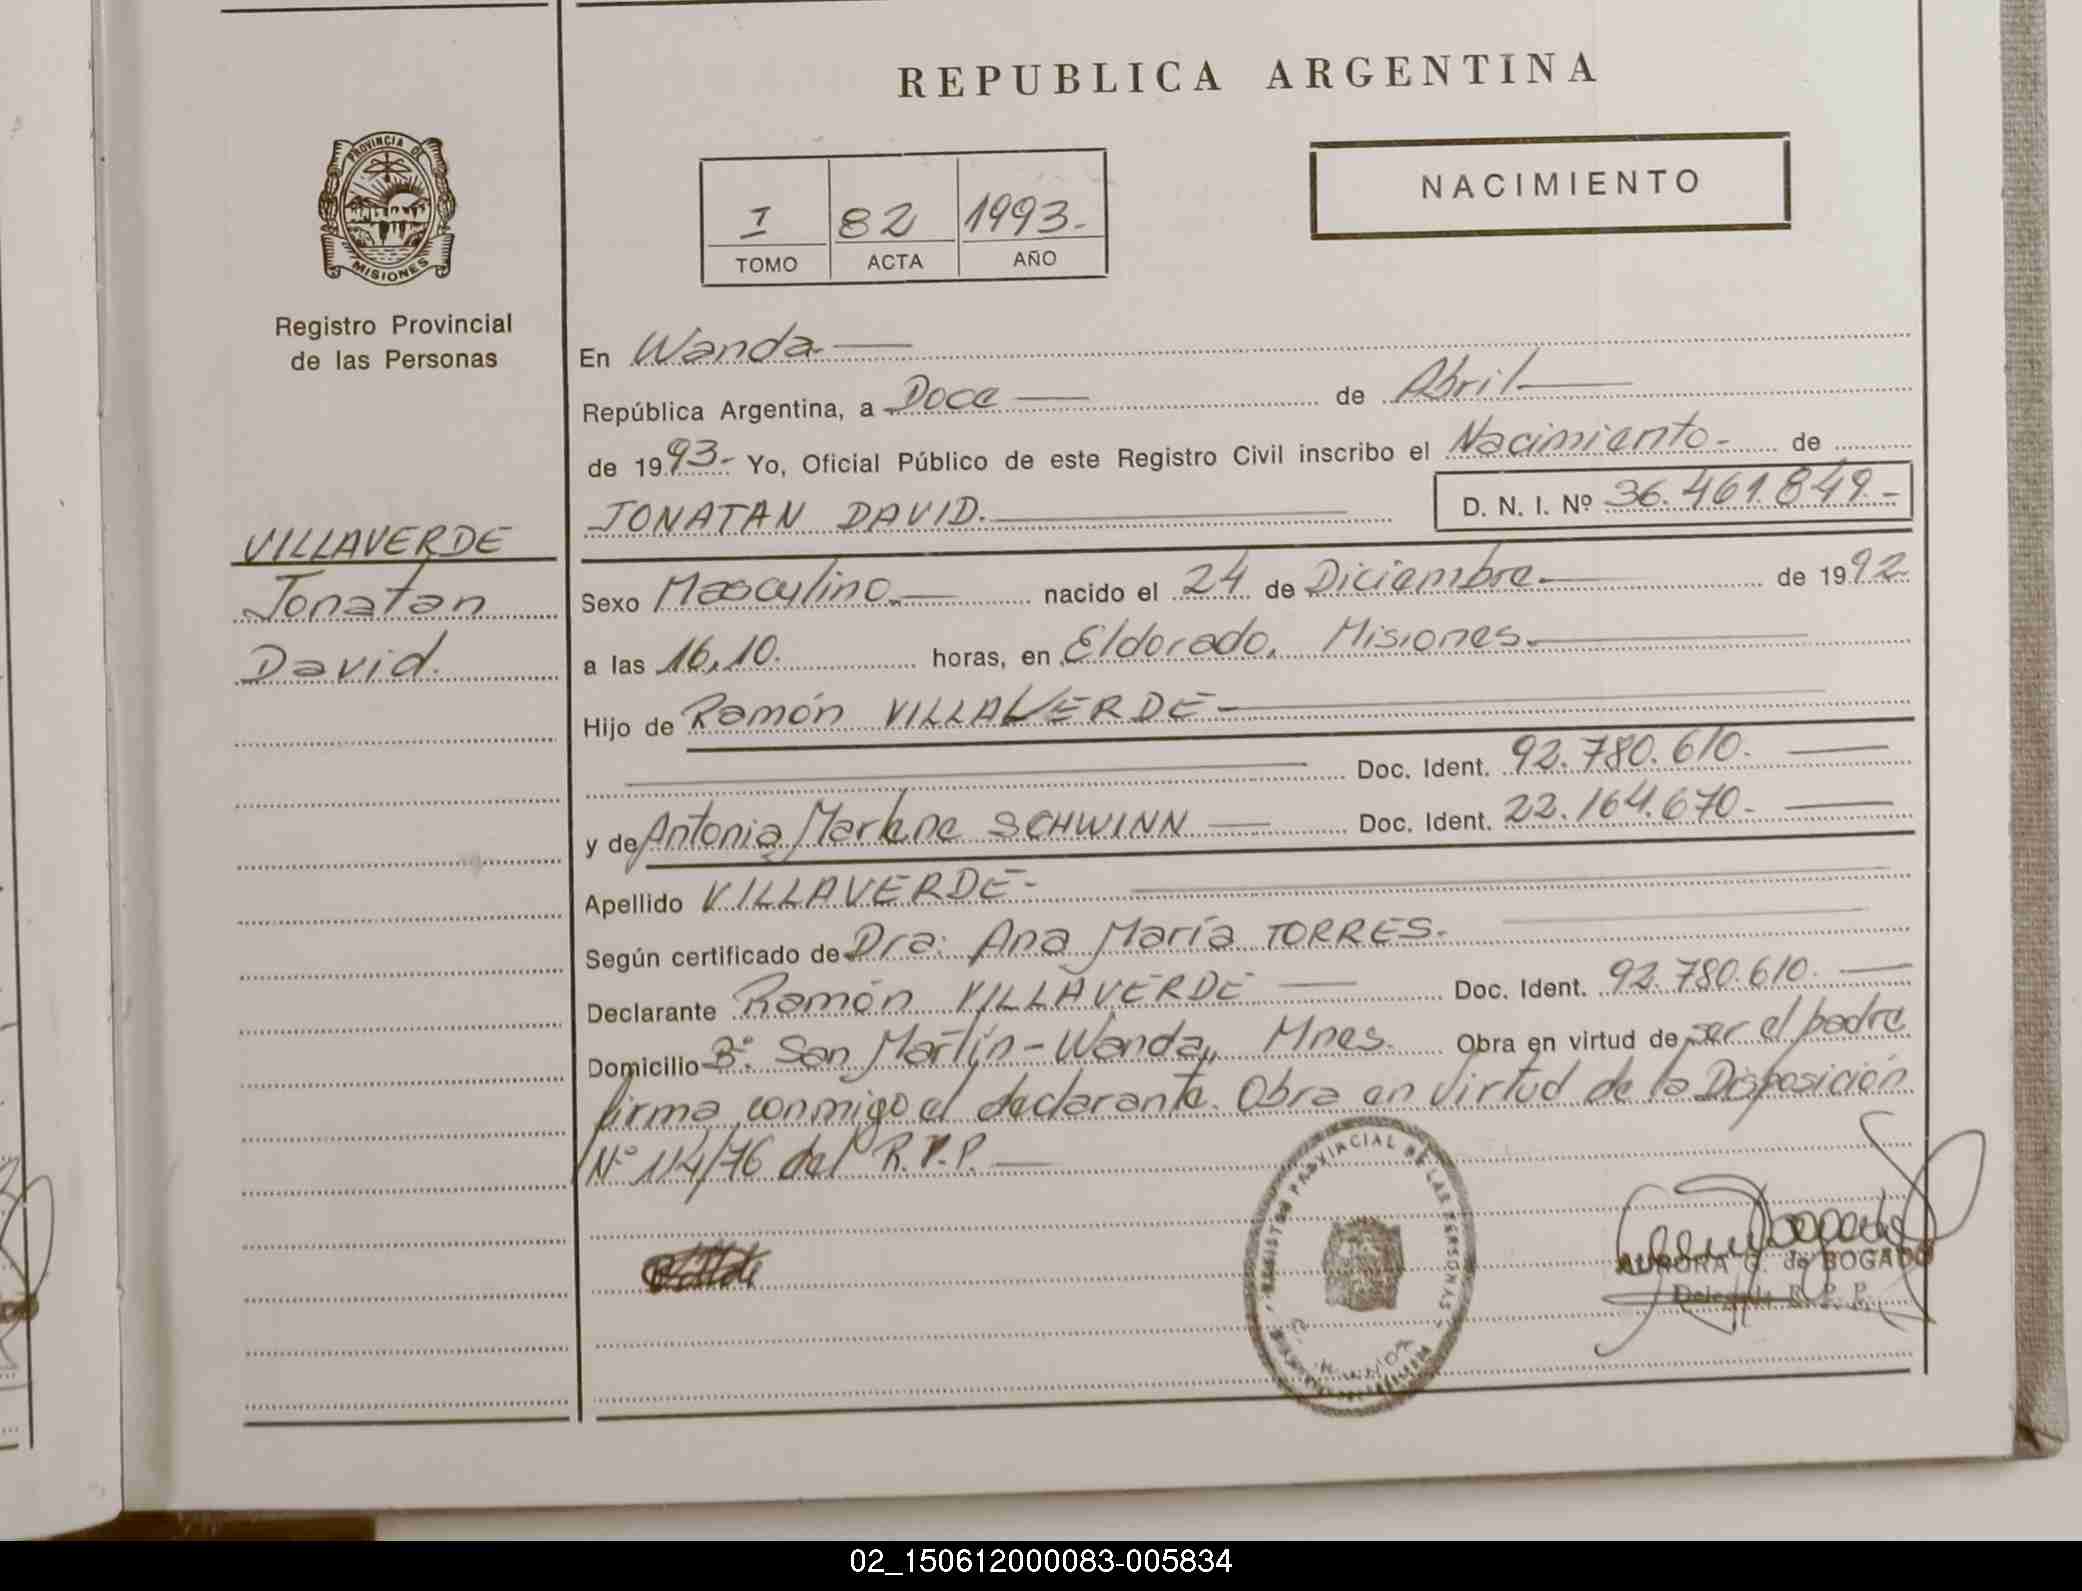 REPUBLICA ARGENTINA
PROVINCIA DE
MISIONES
Registro Provincial
de las Personas
NACIMIENTO
I 82 1993.-
TOMO ACTA AÑO
VILLAVERDE
Jonatan
David.
En Wanda.-
República Argentina, a Doce de Abril
de 1993.- Yo, Oficial Público de este Registro Civil inscribo el Nacimiento.- de
JONATAN DAVID. D. N. I. Nº 36.461.849.-
Sexo Masculino.- nacido el 24 de Diciembre.- de 1992
a las 16,10. horas, en Eldorado, Misiones.-
Hijo de Ramón VILLAVERDE-
Doc. Ident. 92.780.610.
y de Antonia Marlene SCHWINN Doc. Ident. 22.164.670.-
Apellido VILLAVERDE-
Según certificado de Dra. Ana María TORRES.
Declarante Ramón VILLAVERDE Doc. Ident. 92.780.610.
Domicilio Bº San Martín-Wanda, Mnes. Obra en virtud de ser el padre
firma conmigo el declarante. Obra en Virtud de la Disposición
Nº 114/76 del R.P.P.
REGISTRO PROVINCIAL DE LAS PERSONAS
AURORA G. de BOGADO
Delegada R. P. P.
02_150612000083-005834